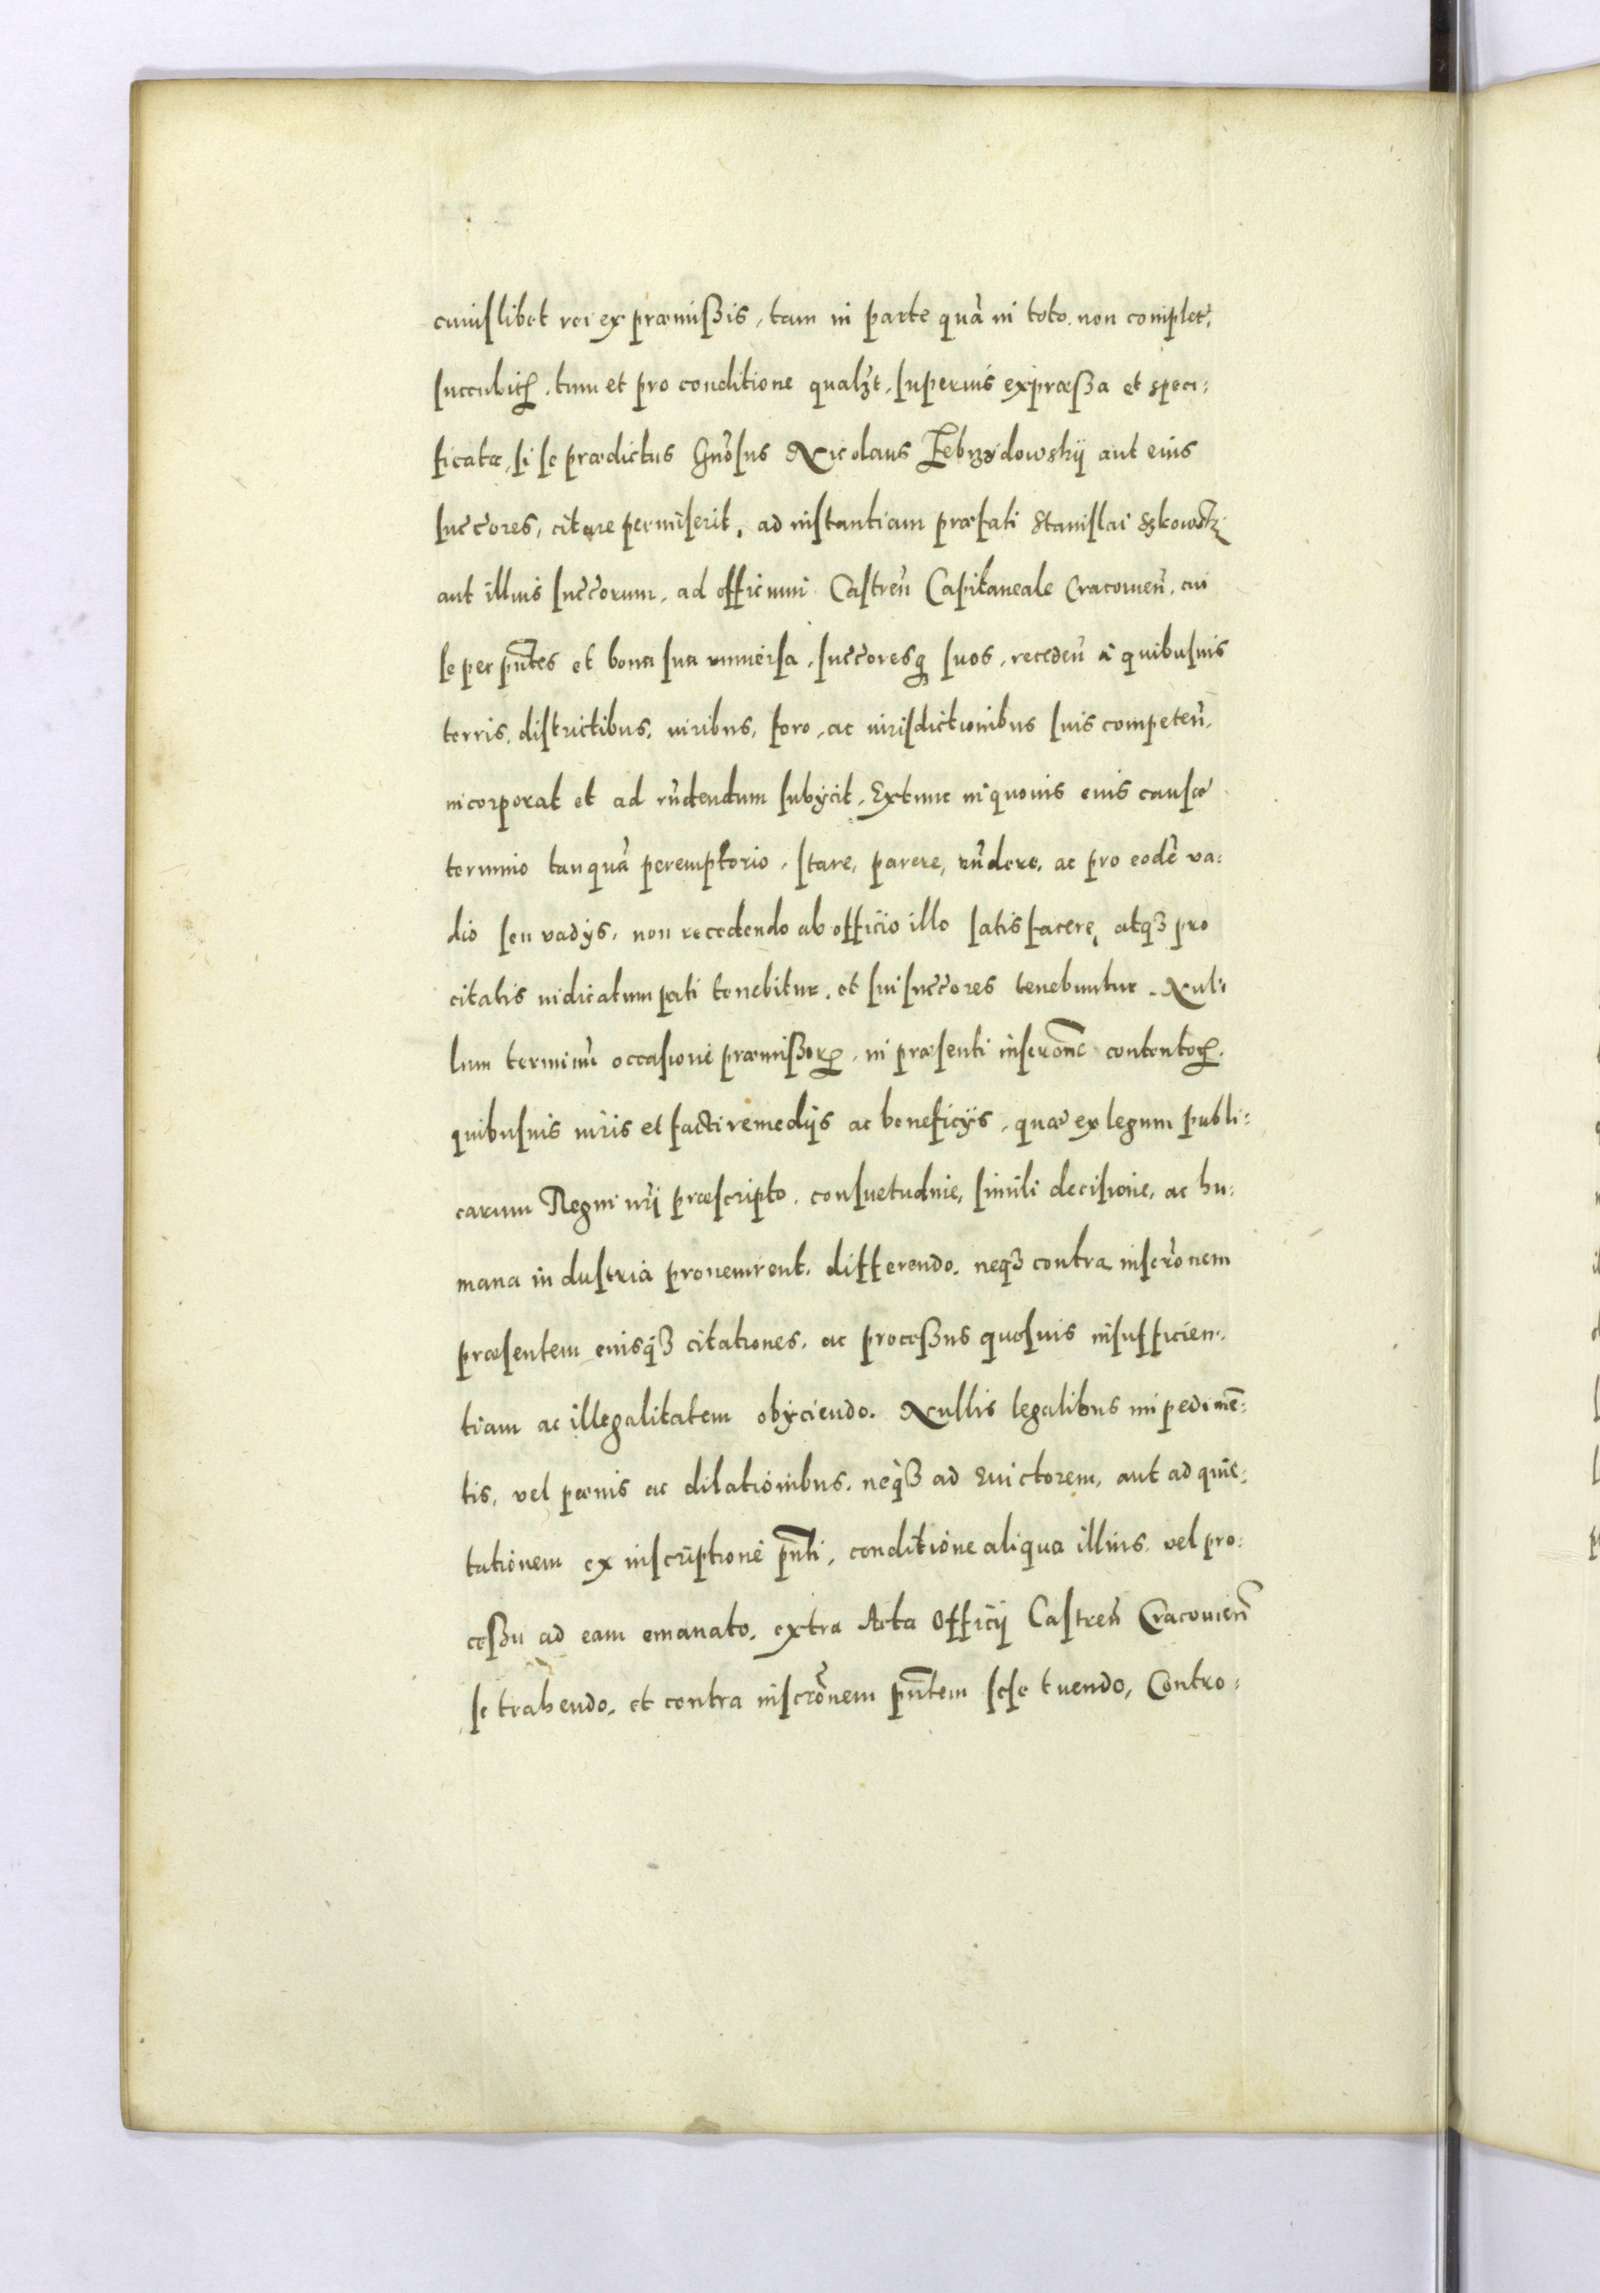 cuiuslibet rei ex præmissis, tam in parte quā in toto, non complet,
tum et pro conditione qualꝫt, superius expræssa et speci:
ficatæ, si se prædictus Gnōsus Nicolaus Zebrzÿdowskÿ aut eius
succ̄ores, citare permiserit, ad instantiam præfati Stanislai
aut illius succ̄orum, ad officium Castren̄ Capitaneale Cracouien̄, cui
se per pn̄tes et bona sua vniuersa, succ̄oresq suos, receden̄ a quibusuis
terris, districtibus, iuribus, foro, ac iurisdictionibus suis competen̄,
incorporat et ad rn̄dendum subÿcit, Extunc in quouis eius causæ
termino tanquā peremptorio, stare, parere, rn̄dere, ac pro eodē va:
dio seu vadÿs, non recedendo ab officio illo satisfacere, atqꝫ pro
citatis iudicatum pati tenebitur, et sui succ̄ores tenebuntur. Nul:
lum terminū occasione præmissorꝝ, in præsenti inscr̄one contentorꝝ,
quibusuis iuris et facti remedÿs ac beneficÿs, quæ ex legum publi:
carum Regni nr̄i præscripto, consuetudine, simili decisione, ac hu:
mana industria prouenirent, differendo, neqꝫ contra inscr̄onem
præsentem eiusqꝫ citationes, ac processus quosuis insufficien:
tiam ac illegalitatem obÿciendo. Nullis legalibus impedimē:
tis, vel pœnis ac dilationibus, neqꝫ ad Euictorem, aut ad quie:
tationem ex inscriptione pn̄ti, conditione aliqua illius, vel pro:
cessu ad eam emanato, extra Acta Officÿ Castren̄ Cracouien̄
se trahendo, et contra inscr̄onem pn̄tem sese tuendo, Contro: